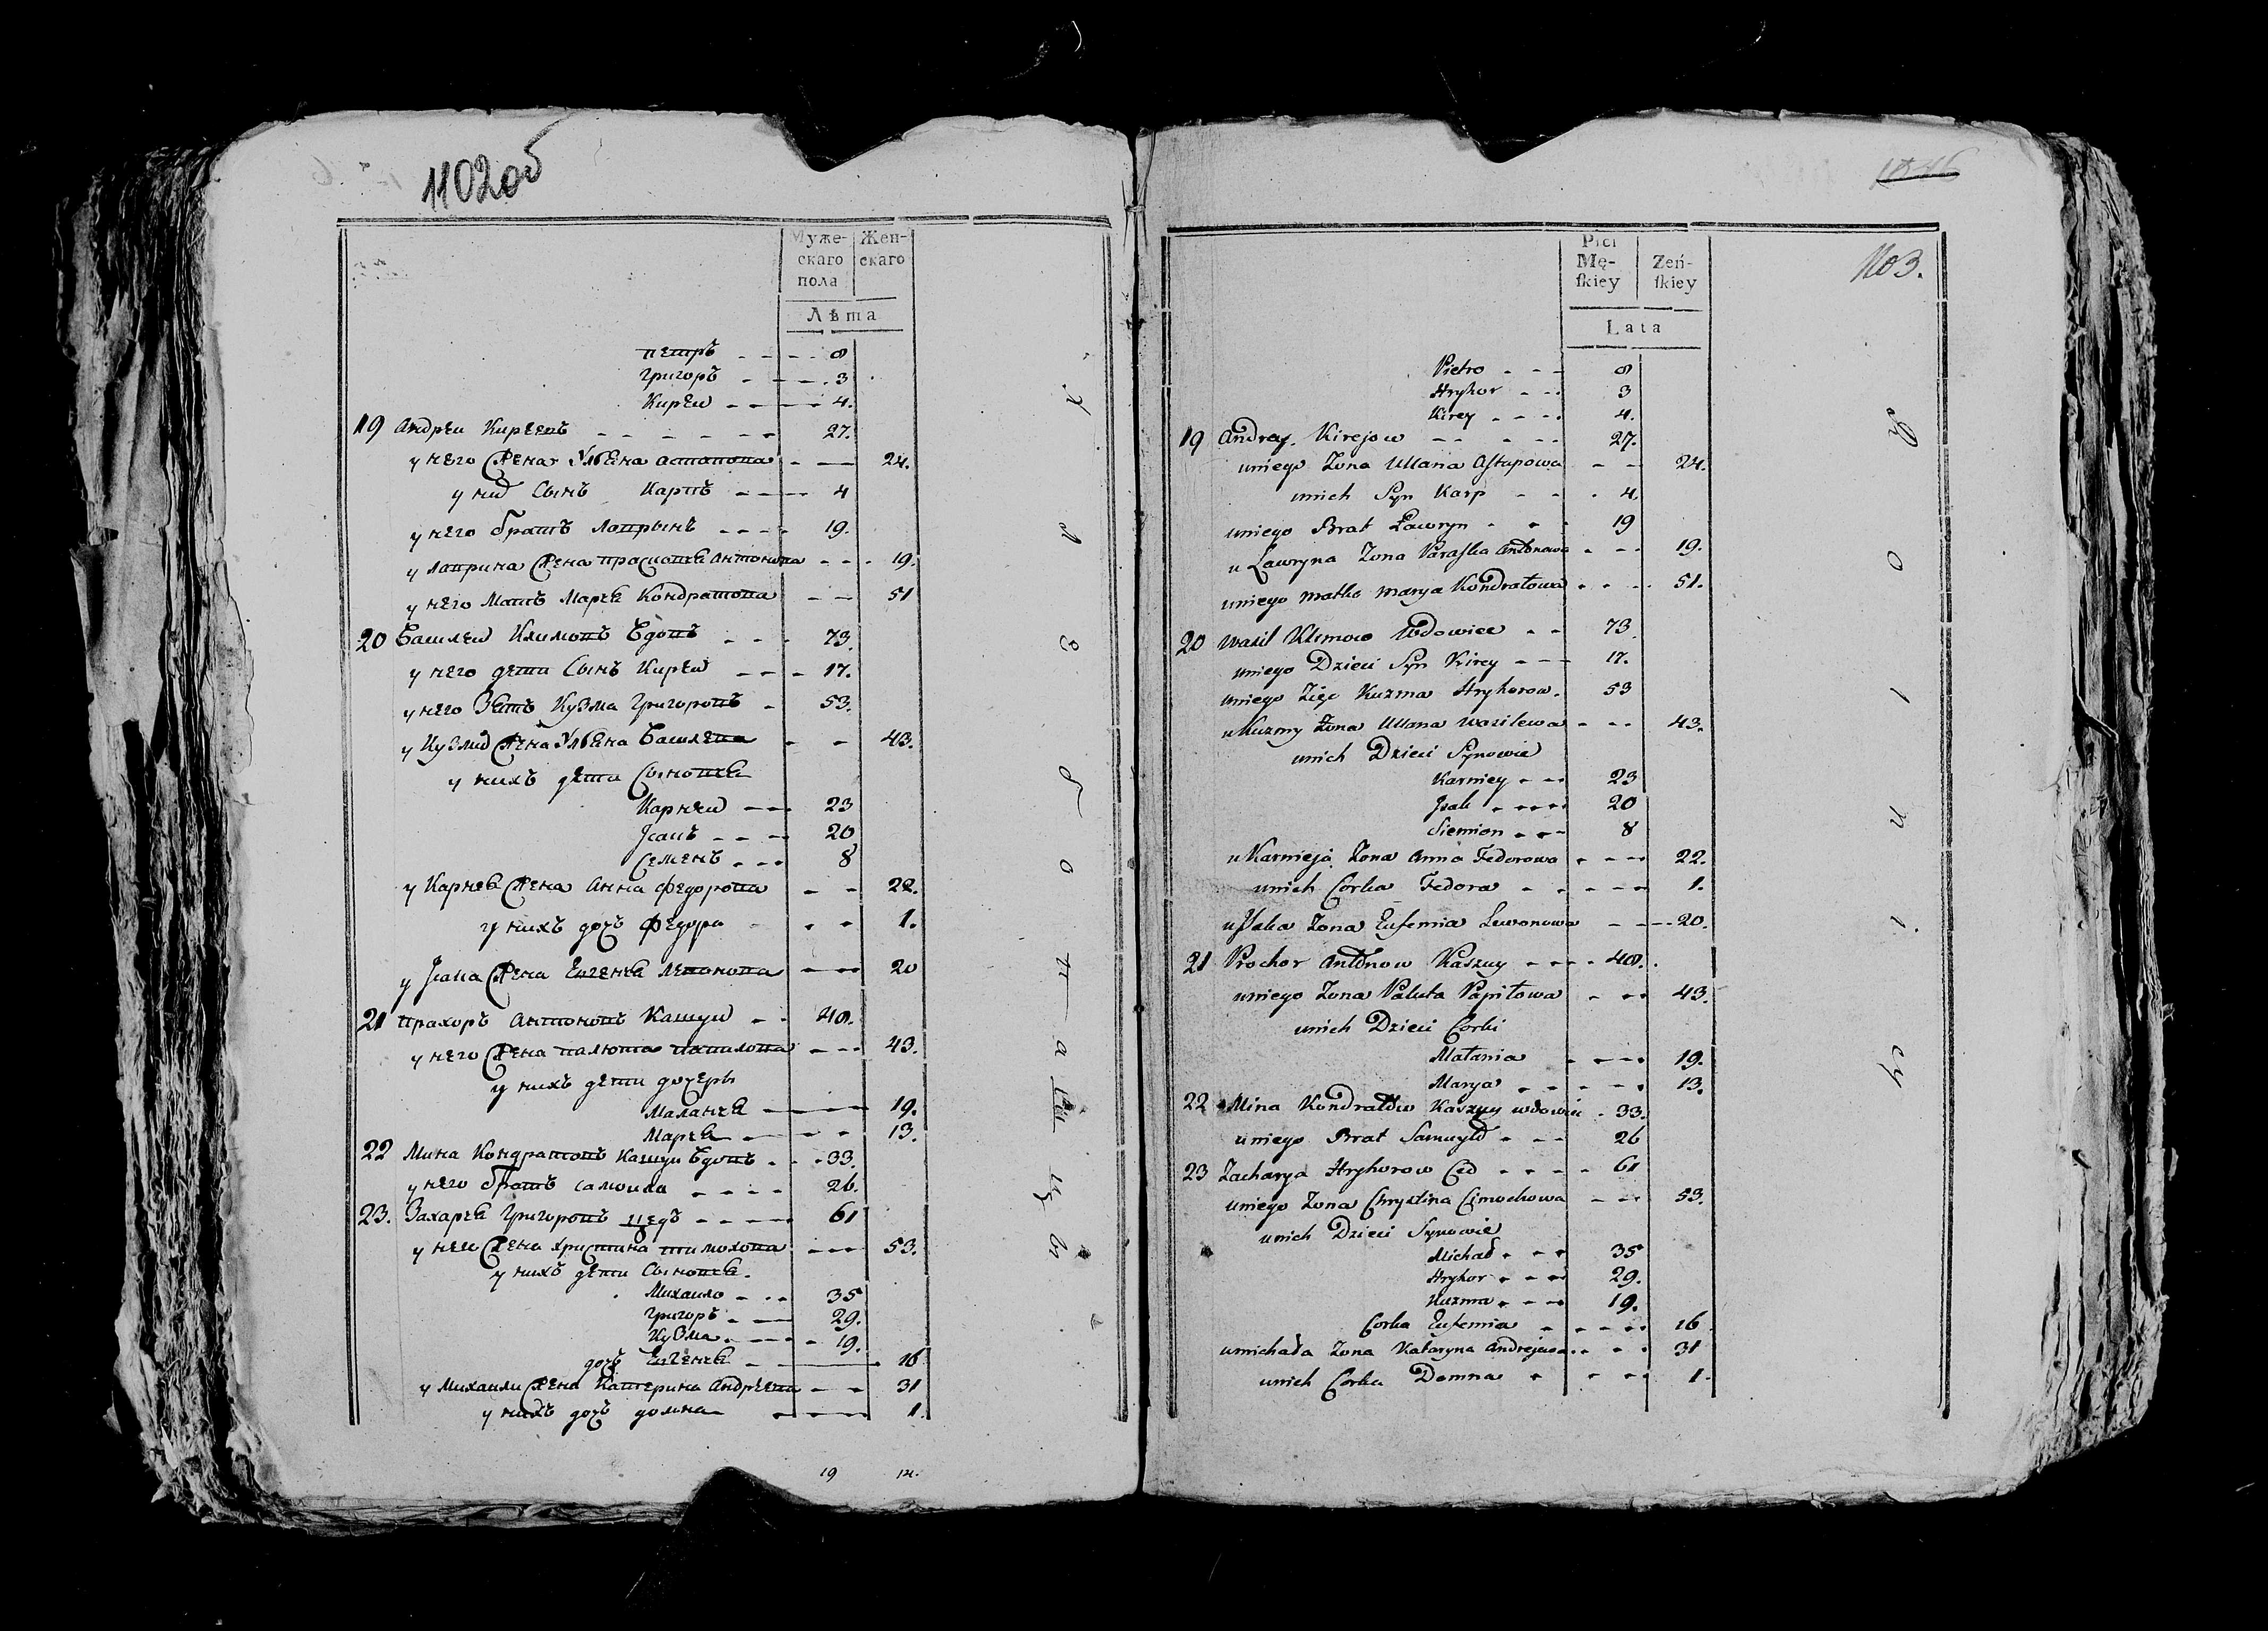 1102об
Муже-
скаго
пола
Жен-
скаго
Лѣта
петръ 8
Григоръ 3
Кирей 4.
19 Андрей Киреевъ 27.
у него жена Ульяна Астапова 24.
у них Сынъ Карпъ 4
у него братъ Лавринъ 19.
у Лаврина жена прасковья Антонова 19.
у него Мать Марья Кондратова 51
20 Василей Климовъ Вдовъ 73.
у него дети Сынъ Кирей 17.
у него Зять Кузма Григоровъ 53.
у Кузмы жена Ульяна Васильева 43.
у нихъ дети Сыновья
Карней 23
Исакъ 20
Семенъ 8
у Карнея жена Анна Федорова 22.
у нихъ дочь Федора 1.
у Исака жена Евгенья Левонова 20
21 Прахоръ Антоновъ Кашуй 48.
у него жена палюта папилова 43.
у нихъ дети дочеры
Маланья 19.
Марья 13.
22 Мина Кондратовъ Кашуй Вдовъ 33.
у него братъ Самойла 26.
23. Захарья Григоровъ Цедъ 61
у него жена христина тимохова 53.
у нихъ дети Сыновья.
Михайло 35
Григоръ 29.
Кузма 19.
дочь Евгенья 16
у Михайли жена Катерина Андреева 31
у нихъ дочь домна 1.
19 14.
1103.
Płci
Mę-
ſkiey
Zeń-
ſkiey
Lata
Pietro 8
Hryhor 3
Kirey 4.
19 Andrey Kirejow 27.
uniego Zona Ullana Astapowa 24.
unich Syn Karp 4.
uniego Brat Ławryn 19
u Ławryna Zona Paraska Antonowa 19.
uniego Matka Marya Kondratowa 51.
20 Wasil Klimow Wdowiec 73
uniego Dzieci Syn Kirey 17.
uniego Zięć Kuzma Hryhorow. 53
u Kuzmy Zona Ullana Wasilewa 43.
unich Dzieci Synowie
Karniey 23
Jsak 20
Siemion 8
u Karnieja Zona Anna Fedorowa 22.
unich Corka Fedora 1.
u Jsaka Zona Eufemia Lewonowa 20.
21 Prochor Antonow Kaszuy 48.
uniego Zona Paluta Papiłowa 43.
unich Dzieci Corki
Małania 19.
Marya 13.
22 Mina Kondratow Kaszuy wdowiec 33.
uniego Brat Samuyło 26
23 Zacharya Hryhorow Ced 61
uniego Zona Chrystina Cimochowa 53.
unich Dzieci Synowie
Michał 35
Hryhor 29.
Kuzma 19.
Corka Eufemia 16
u Michała Zona Kataryna Andrejewa 31
unich Corka Domna 1.